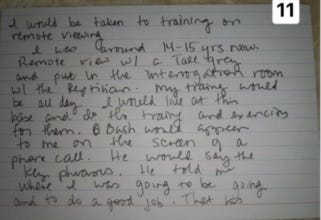 11
I would be taken to training on
remote viewing
I was around 14-15 yrs now.
Remote view w/ a Tall Grey
and put in the interrogation room
w/ the Reptilian. My training would
be all day. I would live at this
base and do the traing and exercises
for them. Bosh would appear
to me on the screen of a
phone call. He would say the
key phrases. He told me
where I was going to be going
and to do a good job. That